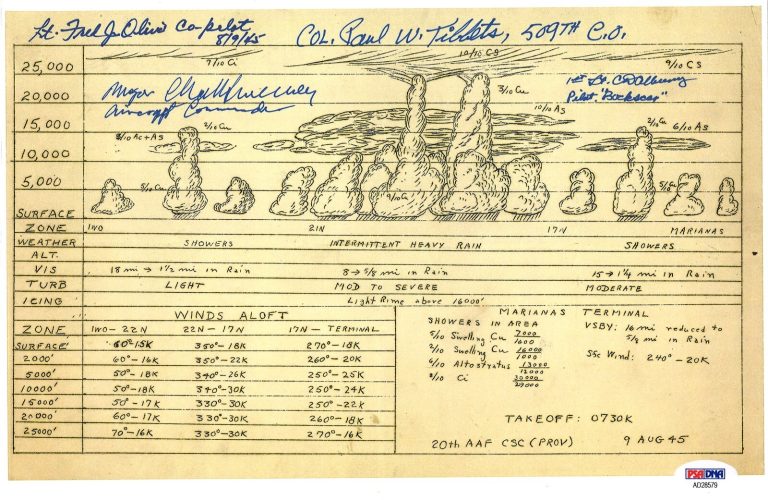 Lt. Fred J. Olivi Co-pilot
8/9/45
COL. Paul W. Tibbets, 509TH C.O.
7/10 Ci
10/10 CS
9/10 CS
25,000
20,000
15,000
10,000
5,000
SURFACE
Major
Aircraft Commander
1st Lt. CD Albury
Pilot. "Bockscar"
3/10 Cu
10/10 As
8/10 Ac+As
2/10 Cu
2/10 Cu
6/10 As
5/10 Cu
9/10 Cu
5/10 Cu
ZONE IWO 21N 17N MARIANAS
WEATHER SHOWERS INTERMITTENT HEAVY RAIN SHOWERS
ALT.
VIS 18 mi → 1 1/2 mi in Rain 8 → 5/8 mi in Rain 15 → 1 1/4 mi in Rain
TURB LIGHT MOD TO SEVERE MODERATE
ICING Light Rime above 16000'
WINDS ALOFT
ZONE IWO - 22N 22N - 17N 17N - TERMINAL
SURFACE 60°-15K 350°-18K 270°-18K
2000' 60°-16K 350°-22K 260°-20K
5000' 50°-18K 340°-26K 250°-25K
10000' 50°-18K 340°-30K 250°-24K
15000' 50°-17K 330°-30K 250°-22K
20000' 60°-17K 330°-30K 260°-18K
25000' 70°-16K 330°-30K 270°-16K
MARIANAS TERMINAL
SHOWERS IN AREA
5/10 Swelling Cu 7000/1600
2/10 Swelling Cu 16000/1000
6/10 Altostratus 13000/12000
8/10 Ci 30000/29000
VSBY: 16 mi reduced to
5/8 mi in Rain
Sfc Wind: 240° - 20K
TAKEOFF: 0730K
20th AAF CSC (PROV) 9 AUG 45
PSA/DNA
AD28579